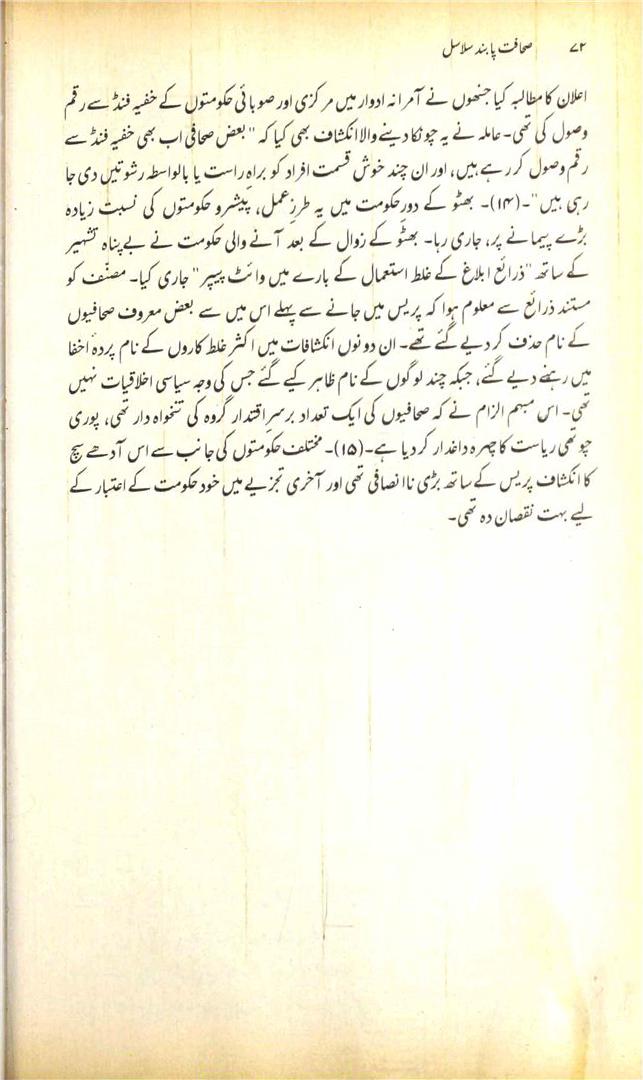 ۷۲ صحافت پابند سلاسل
اعلان کا مطالبہ کیا جنھوں نے آمرانہ ادوار میں مرکزی اور صوبائی حکومتوں کے خفیہ فنڈ سے رقم
وصول کی تھی۔ عاملہ نے یہ چونکا دینے والا انکشاف بھی کیا کہ "بعض صحافی اب بھی خفیہ فنڈ سے
رقم وصول کر رہے ہیں، اور ان چند خوش قسمت افراد کو براہِ راست یا بالواسطہ رشوتیں دی جا
رہی ہیں"۔(۱۴)۔ بھٹو کے دورِ حکومت میں یہ طرزِ عمل، پیشرو حکومتوں کی نسبت زیادہ
بڑے پیمانے پر، جاری رہا۔ بھٹو کے زوال کے بعد آنے والی حکومت نے بے پناہ تشہیر
کے ساتھ "ذرائع ابلاغ کے غلط استعمال کے بارے میں وائٹ پیپر" جاری کیا۔ مصنّف کو
مستند ذرائع سے معلوم ہوا کہ پریس میں جانے سے پہلے اس میں سے بعض معروف صحافیوں
کے نام حذف کر دیے گئے تھے۔ ان دونوں انکشافات میں اکثر غلط کاروں کے نام پردۂ اخفا
میں رہنے دیے گئے، جبکہ چند لوگوں کے نام ظاہر کیے گئے جس کی وجہ سیاسی اخلاقیات نہیں
تھی۔ اس مبہم الزام نے کہ صحافیوں کی ایک تعداد برسرِ اقتدار گروہ کی تنخواہ دار تھی، پوری
چوتھی ریاست کا چہرہ داغدار کر دیا ہے۔(۱۵)۔ مختلف حکومتوں کی جانب سے اس آدھے سچ
کا انکشاف پریس کے ساتھ بڑی ناانصافی تھی اور آخری تجزیے میں خود حکومت کے اعتبار کے
لیے بہت نقصان دہ تھی۔